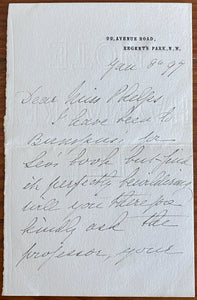 90, AVENUE ROAD,
REGENT'S PARK, N.W.
Jan 9th 97
Dear Miss Phelps
I have been to
Bumpus, for
Leo's book but find
it perfectly bewildering
will you therefore
kindly ask the
professor, your